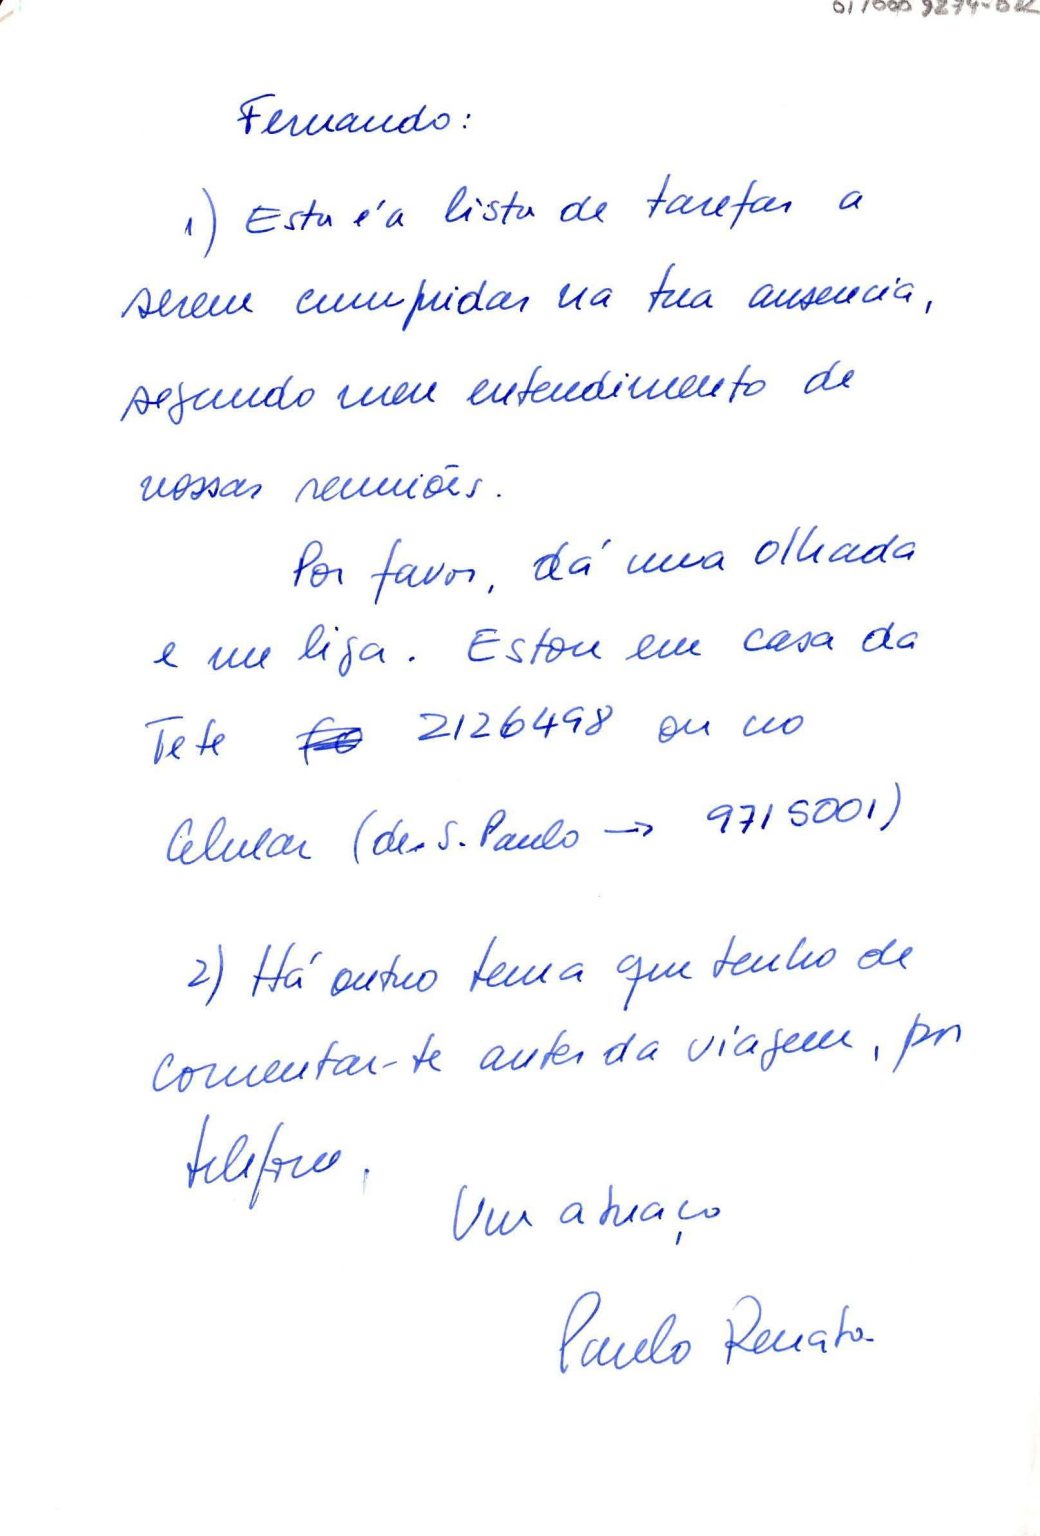 Fernando:
1) Esta é a lista de tarefas a
serem cumpridas na tua ausencia,
segundo meu entendimento de
nossas reuniões.
Por favor, dá uma olhada
e me liga. Estou em casa da
Tete 2126498 ou no
Celular (de S. Paulo → 9715001)
2) Há outro tema que tenho de
comentar-te antes da viagem, por
telefone.
Um abraço
Paulo Renato